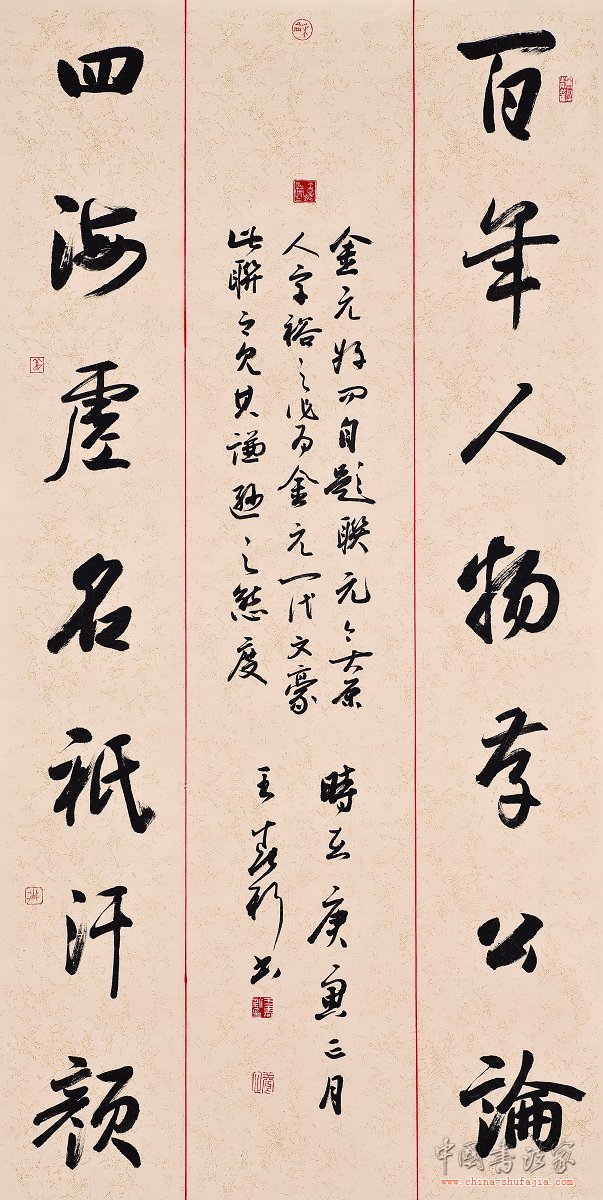 百年人物存公論
金元好問自題聯元〻太原
人字裕之為金元一代文豪
此聯見其謙遜之態度
時在庚寅正月
王書
四海虛名祇汗顏
中国书法家
www.china-shufajia.com